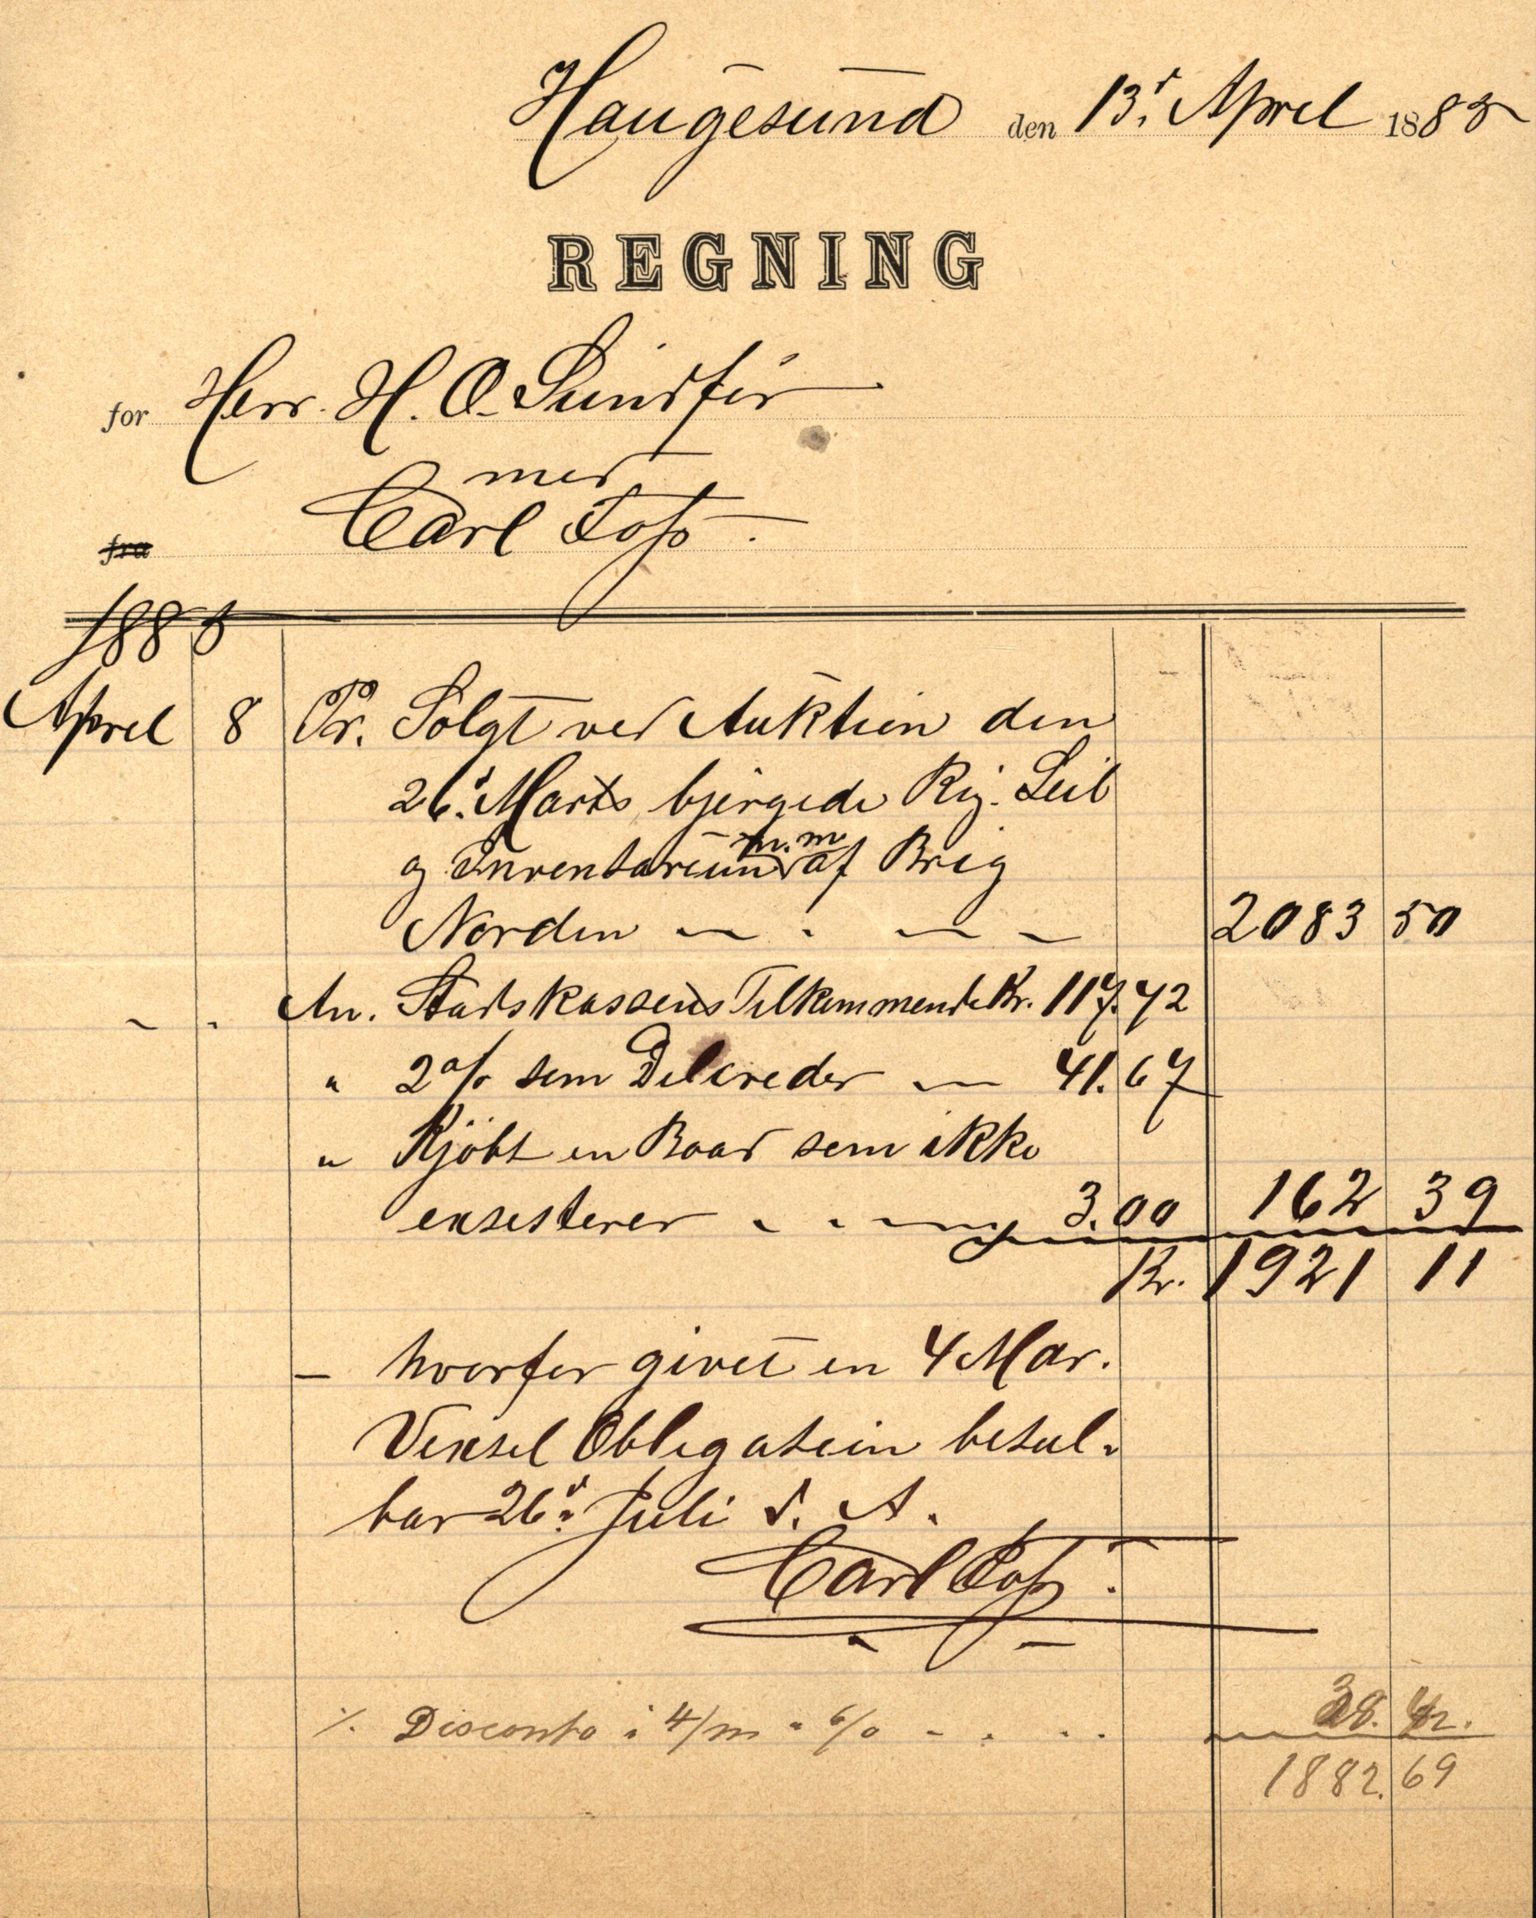 Haugesund den 13' April 1885
REGNING
for Herr. H. O. Sundfør
med
fra Carl Foss.
1885
April 8 Pr. Solgt ved Auktion den
26d Marts bjergede Rig. Seil
m.m
og Inventarium af Brig
Norden 2083 50
An. Stadskassens Tilkommende Kr. 117.72
" 2 % som Delcreder 41.67
" Kjöbt en Baad som ikke
exsisterer 3.00 162 39
Kr. 1921 11
– hvorfor givet en 4 Mar.
Vexsel Obligation betal-
bar 26d Juli d. A.
Carl Foss.
% Disconto i 4/m a 6 % 38.42.
1882.69